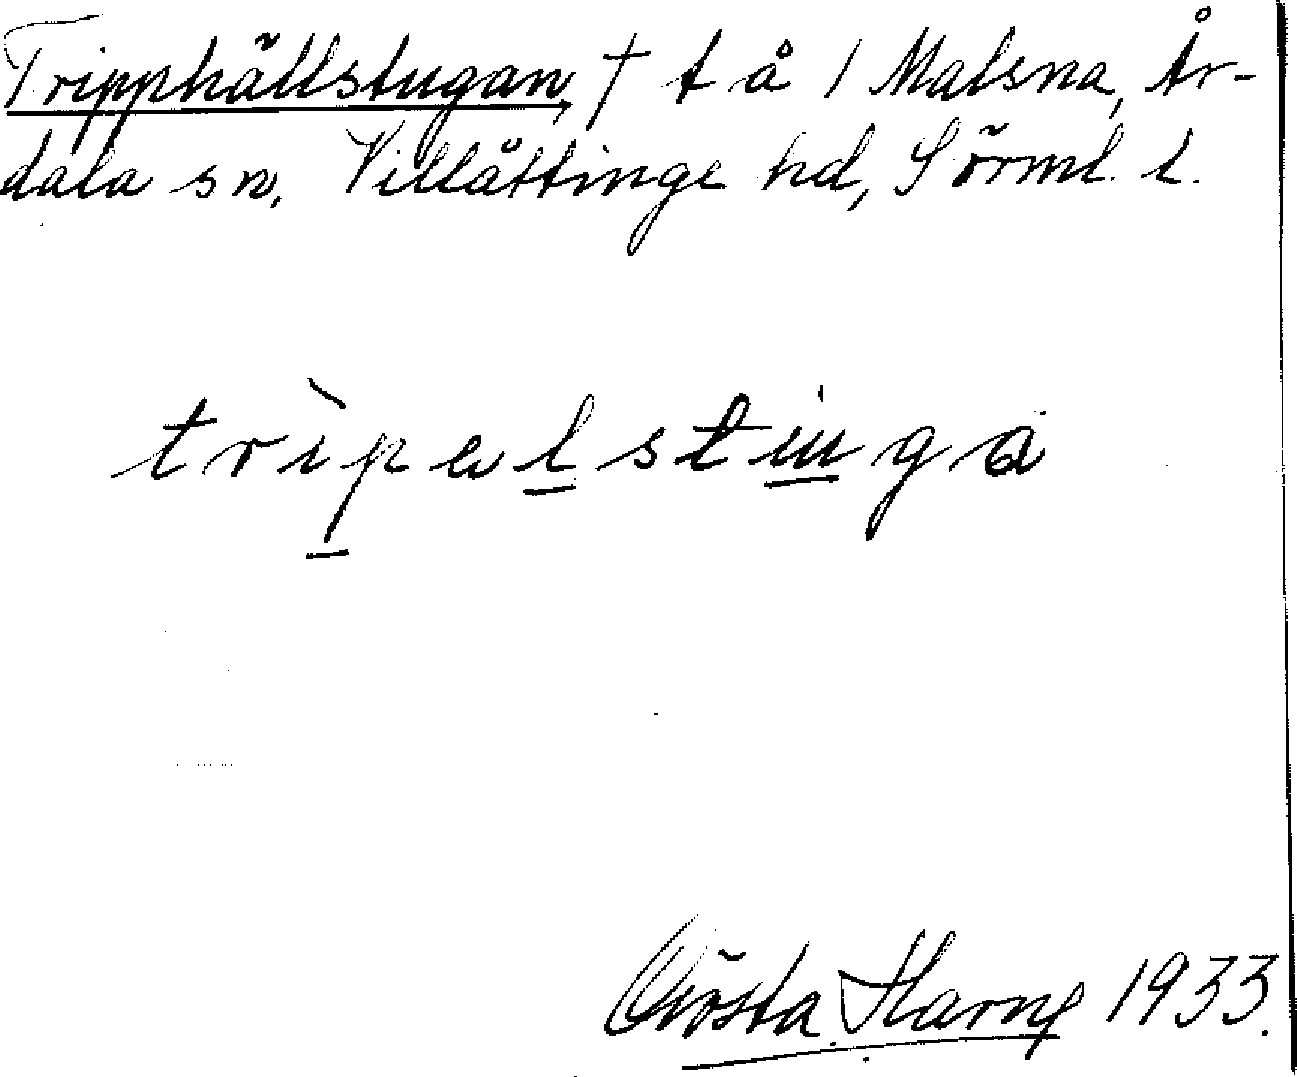 Tripphällstugan, † t å / Malsna, År-
dala sn, Villåttinge hd, Sörml. l.
trìpelstuga
Gösta Harng 1933.